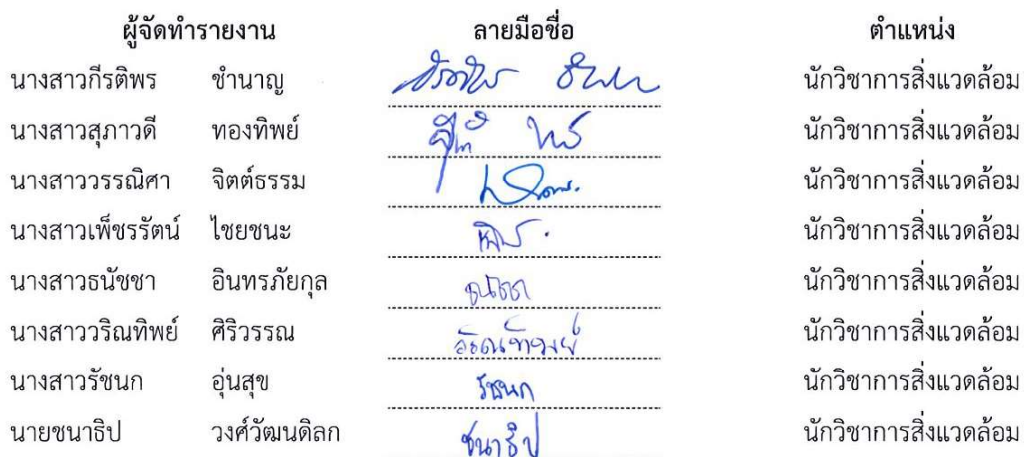 ผู้จัดทำรายงาน ลายมือชื่อ ตำแหน่ง
นางสาวกีรติพร ชำนาญ นักวิชาการสิ่งแวดล้อม
นางสาวสุภาวดี ทองทิพย์ นักวิชาการสิ่งแวดล้อม
นางสาววรรณิศา จิตต์ธรรม นักวิชาการสิ่งแวดล้อม
นางสาวเพ็ชรรัตน์ ไชยชนะ นักวิชาการสิ่งแวดล้อม
นางสาวธนัชชา อินทรภัยกุล นักวิชาการสิ่งแวดล้อม
นางสาววริณทิพย์ ศิริวรรณ นักวิชาการสิ่งแวดล้อม
นางสาวรัชนก อุ่นสุข รัชนก นักวิชาการสิ่งแวดล้อม
นายชนาธิป วงศ์วัฒนดิลก ชนาธิป นักวิชาการสิ่งแวดล้อม